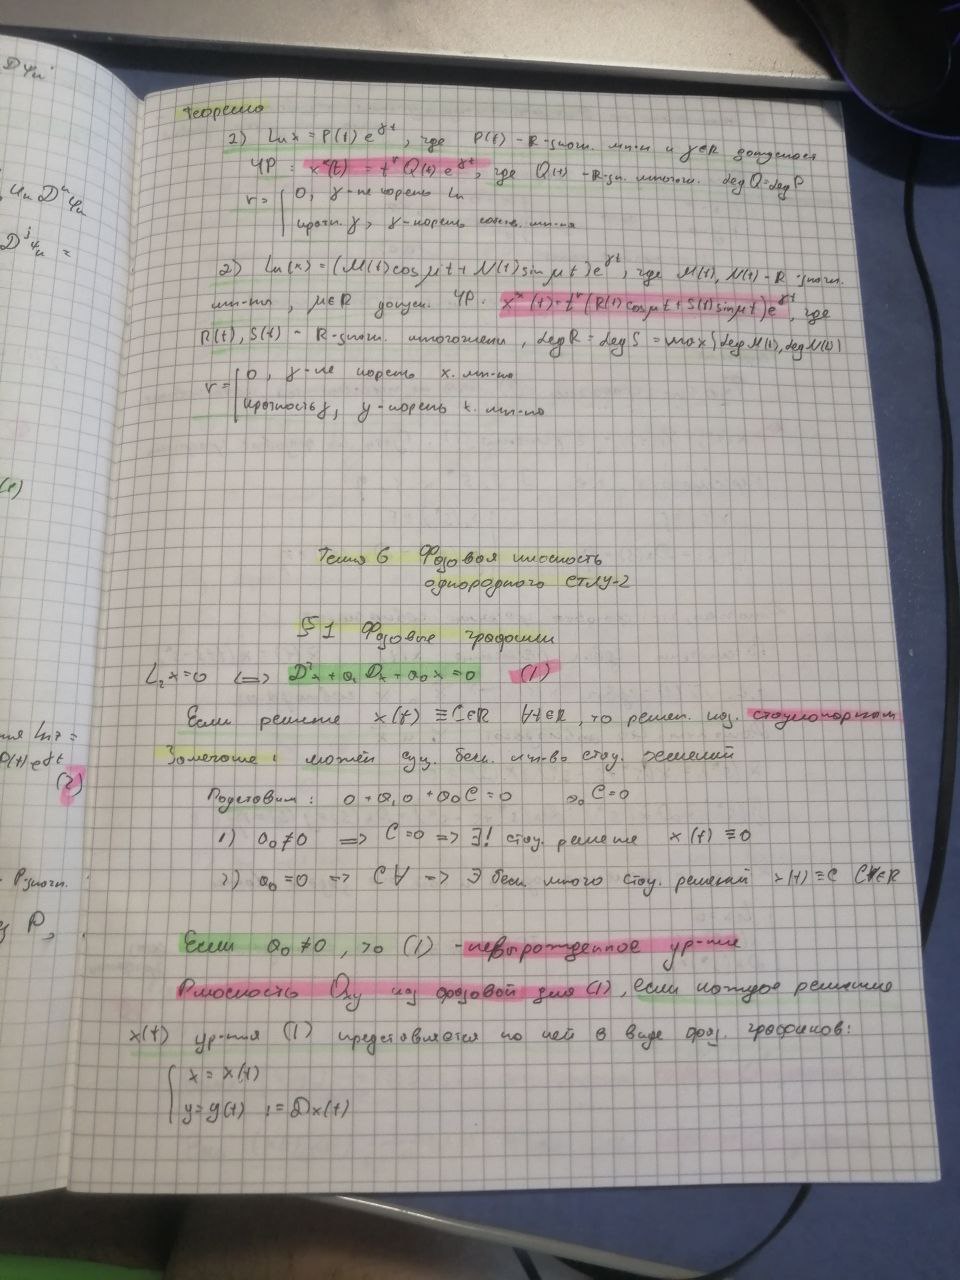 Dφₙ
φₙ Dⁿφₙ
Dʲφₙ =
(t)
Lₙx =
P(t)e^γt
(2)
- R-значн.
P,
Теорема
1) Lₙx = P(t) e^γt, где P(t) - R-значн. мн-н и γ∈R допускает
ЧР : x*(t) = t^r Q(t) e^γt, где Q(t) - R-зн. многоч. deg Q = deg P
r = { 0, γ - не корень
кратн. γ, γ - корень мн-на
2) Lₙ(x) = (M(t)cos μt + N(t) sin μt) e^γt, где M(t), N(t) - R-значн.
мн-ны, μ∈R допуск. ЧР. x*(t) = t^r (R(t) cos μt + S(t) sin μt) e^γt, где
R(t), S(t) - R-значн. многочлены, deg R = deg S = max{deg M(t), deg N(t)}
r = { 0, γ - не корень х. мн-на
кратность γ, γ - корень х. мн-на
Тема 6 Фазовая плоскость
однородного СТЛУ-2
§1 Фазовые графики
L₂x=0 <=> D²x + a₁Dx + a₀x = 0 (1)
Если решение x(t) ≡ C∈R ∀t∈R, то решен. наз. стационарным
Замечание: может сущ. беск. мн-во стац. решений
Подставим: 0 + a₁0 + a₀C = 0 a₀C=0
1) a₀≠0 => C=0 => ∃! стац. решение x(t) ≡ 0
2) a₀=0 => C∀ => ∃ беск. много стац. решений x(t) ≡ C C∀∈R
Если a₀≠0, то (1) - невырожденное ур-ние
Плоскость Oxy наз фазовой для (1), если каждое решение
x(t) ур-ния (1) представляется на ней в виде фаз. графиков:
{ x = x(t)
y = y(t) := Dx(t)